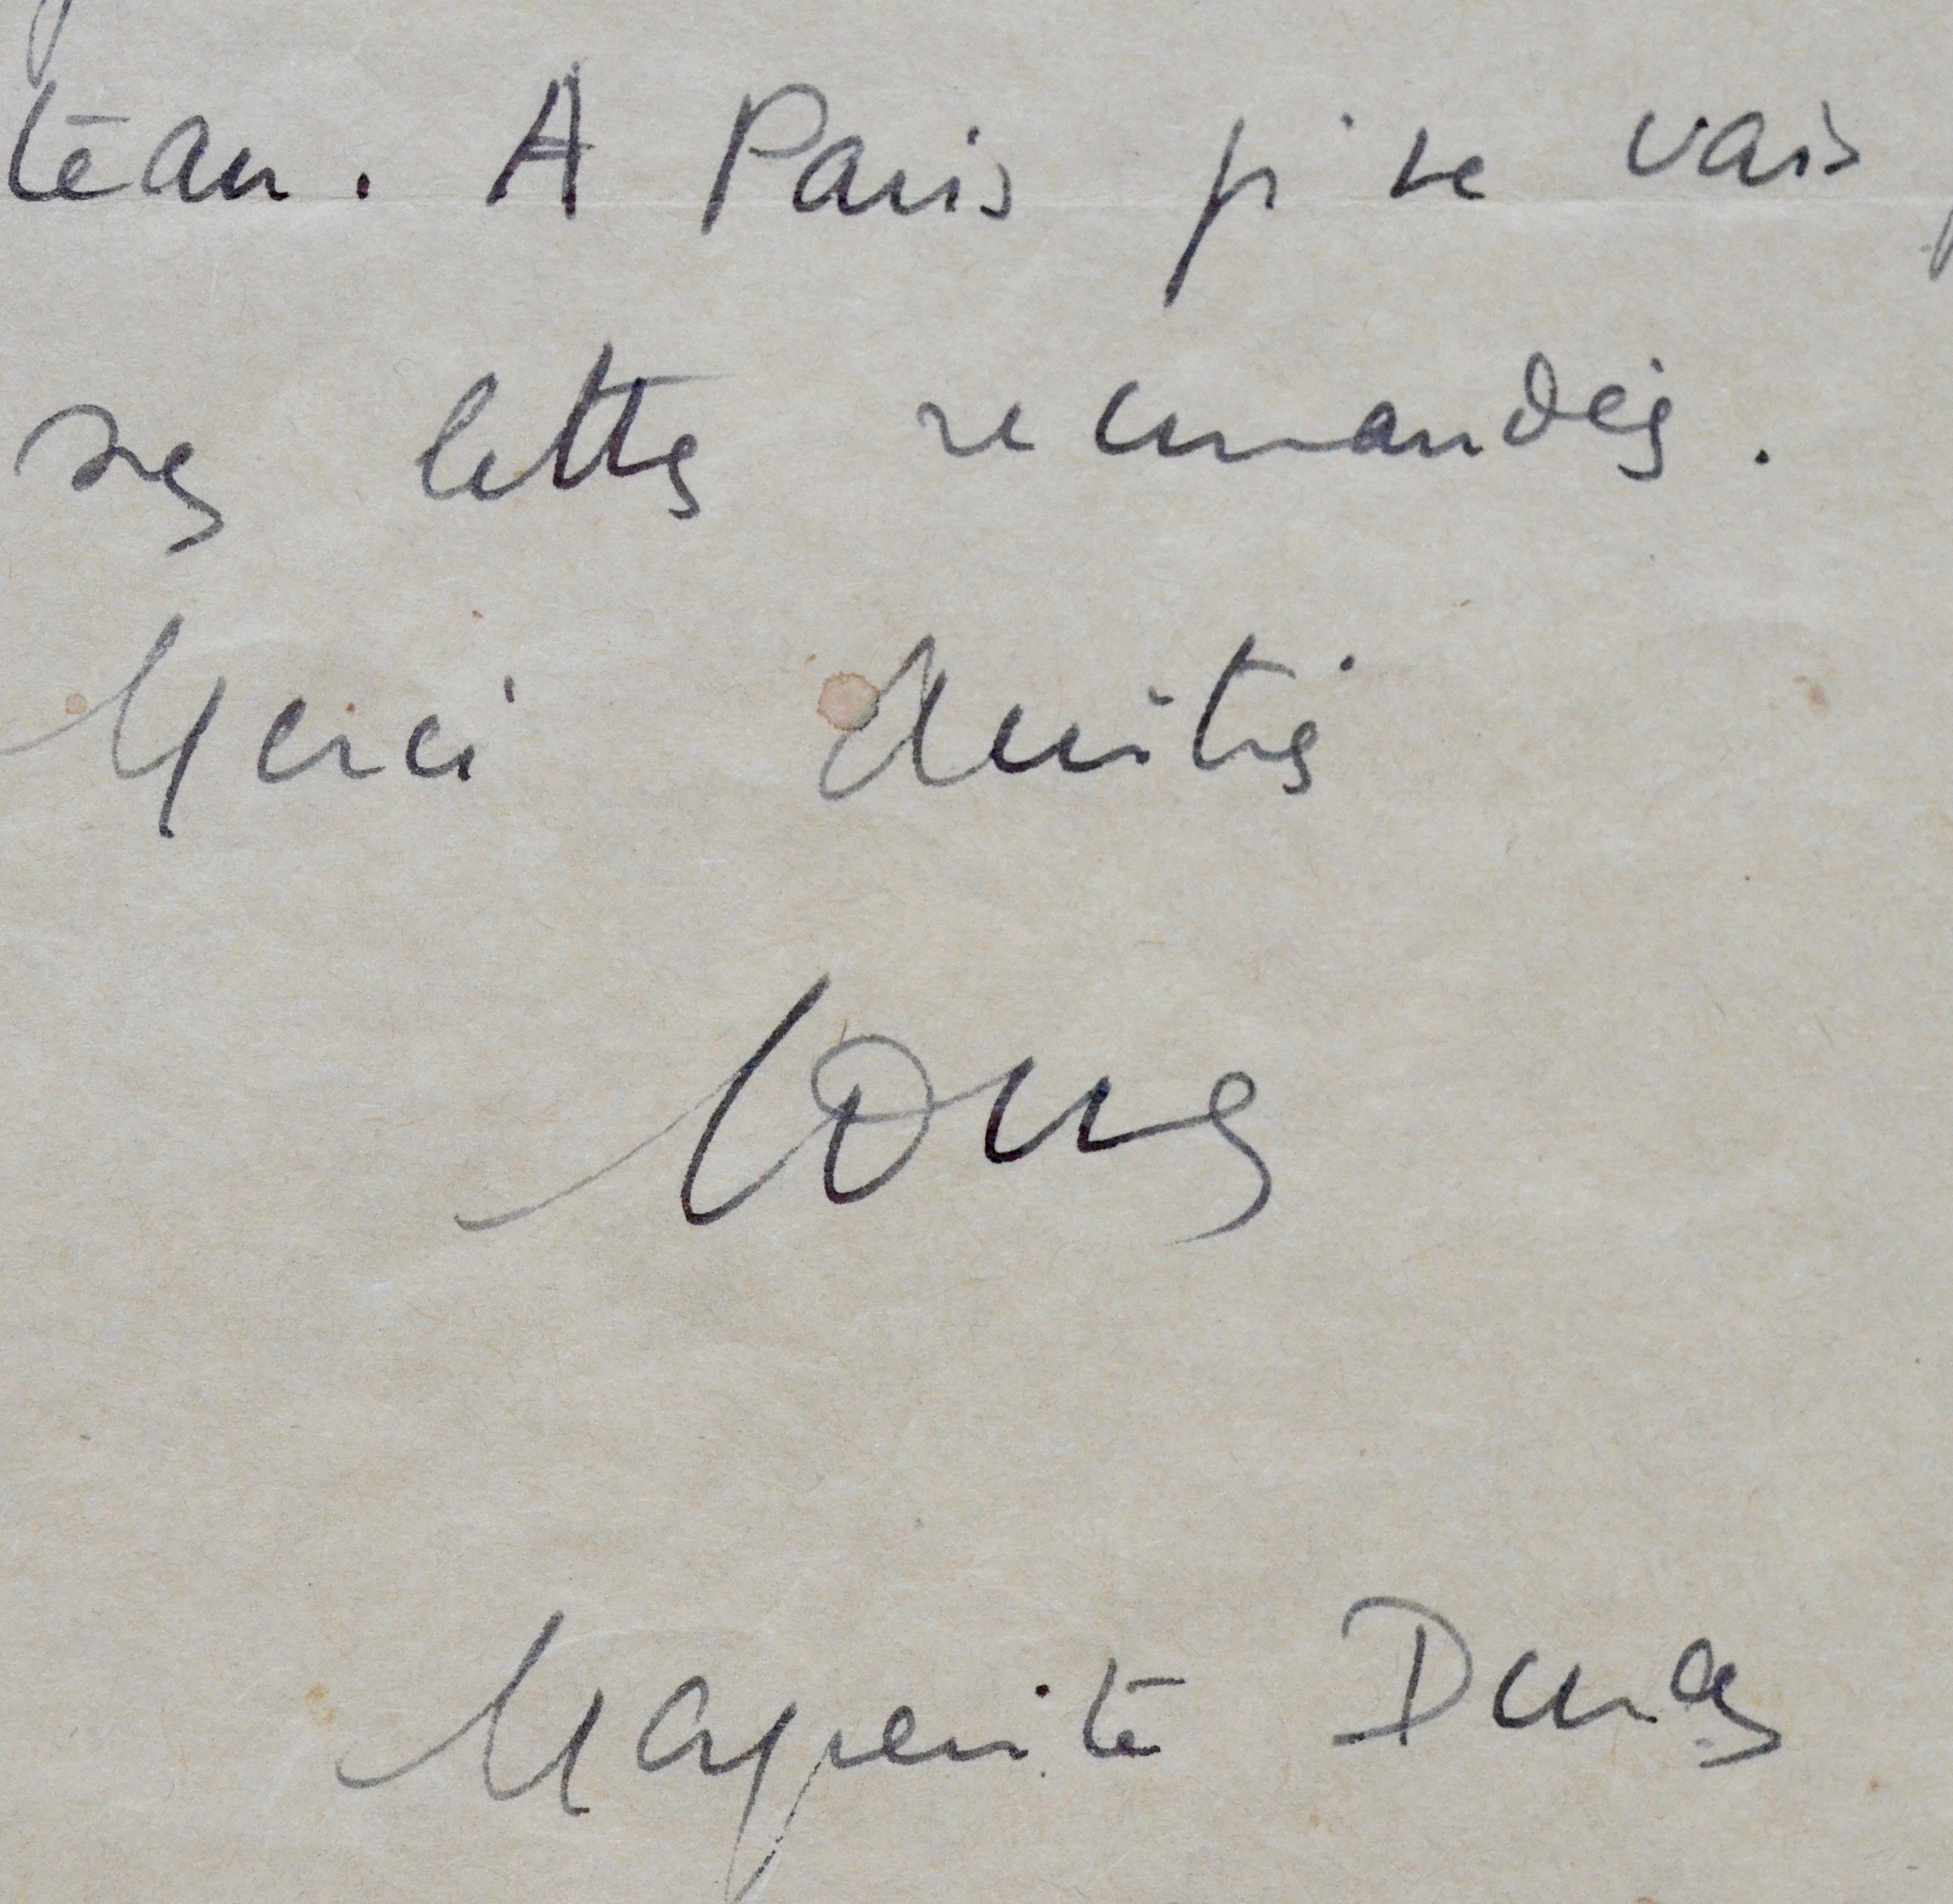 teau. A Paris je ne vais
mes lettres recommandées.
Merci Amitiés
Marguerite Duras